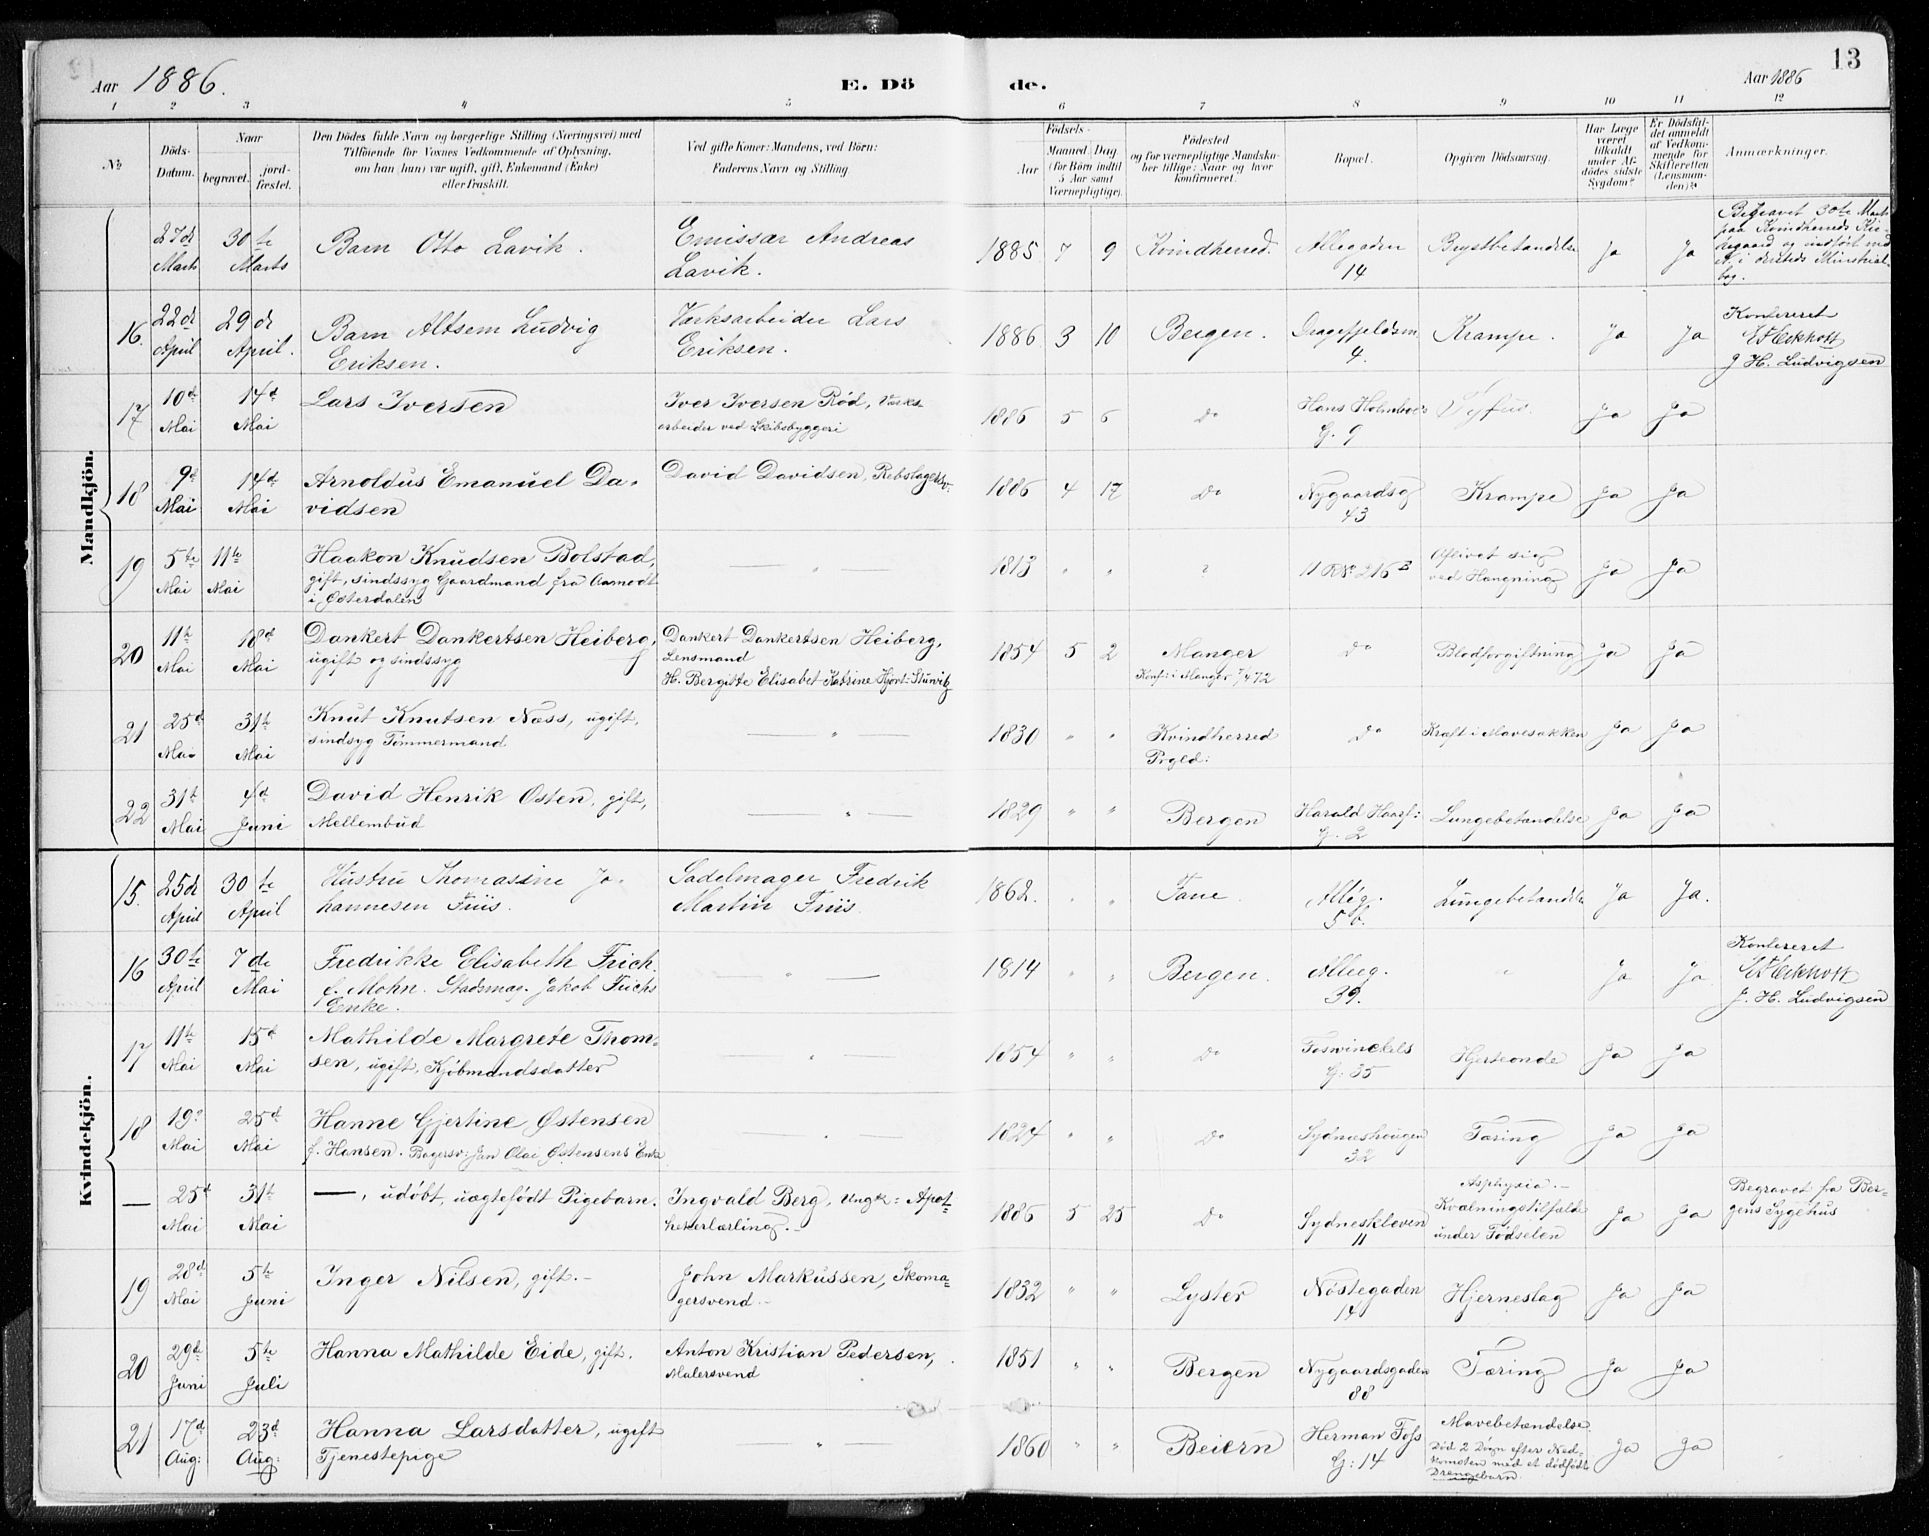 Aar 1886.
E. Dö
de.
Aar 1886
13
1 2 3 4 5 6 7 8 9 10 11 12
No.
Döds-Datum.
Naar
begravet.
jord-fæstet.
Den Dödes fulde Navn og borgerlige Stilling (Næringsvei) med
Tilföiende for Voxnes Vedkommende af Oplysning,
om han (hun) var ugift, gift, Enkemand (Enke)
eller fraskilt.
Ved gifte Koner: Mandens, ved Börn:
Faderens Navn og Stilling.
Födsels-
Aar
Maaned. Dag.
(for Börn indtil
5 Aar samt
Værnepligtige).
Födested
og for værnepligtige Mandska-
ber tillige: Naar og hvor
konfirmeret.
Bopæl.
Opgiven Dödsaarsag.
Har Læge
været
tilkaldt
under Af-
dödes sidste
Sygdom?
Er Dödsfal-
det anmeldt
af Vedkom-
mende for
Skifteretten
(Lensman-
den)?
Anmærkninger.
Mandkjön.
27de Marts 30te Marts Barn Otto Lavik. Emissær Andreas Lavik. 1885 7 9 Kvindherred. Allegaden 14 Brystbetændelse Ja Ja Begravet 30te Marts paa Kvindherreds Kirkegaard og indført i dersteds Ministerialbog.
16. 22de April 29de April. Barn Altsem Ludvig Eriksen. Værksarbeider Lars Eriksen. 1886 3 10 Bergen. Dragefjeldsm. 4. Krampe. Ja Ja Konfereret E Eckhoff J. H. Ludvigsen
17 10d Mai 14d Mai Lars Iversen Iver Iversen Rød, Værksarbeider ved Skibsbyggeri 1886 5 6 Do Hans Holmboes G. 9 Ja Ja
18 9d Mai 14d Mai Arnoldus Emanuel Davidsen David Davidsen, Rebslagersv. 1886 4 17 Do Nygaardsg 43 Krampe Ja Ja
19 5te Mai 11te Mai Haakon Knudsen Bolstad, gift, sindssyg Gaardmand fra Aamodt i Østerdalen — " — 1813 " " " 11 Rd 216 B Aflivet sig ved Hængning Ja Ja
20 11te Mai 18d Mai Dankert Dankertsen Heiberg, ugift og sindssyg Dankert Dankertsen Heiberg, Lensmand H. Bergitte Elisabet Katrine Hjort Stuwitz 1854 5 2 Manger Konf: i Manger 72 Do Blodforgiftning Ja Ja
21 25d Mai 31te Mai Knut Knutsen Næss, ugift, sindsyg Tømmermand — " — 1830 " " Kvindherred Prgld: Do Kræft i Mavesækken Ja Ja
22 31te Mai 4d Juni David Henrik Osten, gift, Mellembud — " — 1829 " " Bergen Harald Haarf: G. 2 Lungebetændelse Ja Ja
Kvindekjön.
15. 25de April 30te April Hustru Thomasine Johannesen Friis. Sadelmager Fredrik Martin Friis. 1862. " " Fane. Alleg. 5b. Lungebetændelse Ja Ja.
16 30te April 7de Mai Fredrikke Elisabeth Frich. f. Mohn. Stadsmæg. Jakob Frichs Enke. — " — 1814 " " Bergen. Alleg. 39. " Ja Ja. Konfereret E Eckhoff J. H. Ludvigsen
17 11te Mai 15d Mai Mathilde Margrete Thomsen, ugift, Kjøbmandsdatter — " — 1854 " " Do Foswinckels G. 35 Hjerteonde Ja Ja
18 19d Mai 25d Mai Hanne Gjertine Østensen f. Hansen. Bagersv: Jan Olai Østensens Enke — " — 1824 " " Do Sydneshougen 32 Tæring Ja Ja
— 25d Mai 31te Mai —, udøbt, uægtefødt Pigebarn. Ingvald Berg, Ungk: Apothekerlærling. — 1886 5 25 Do Sydneskleven 11 Asphyxia. — Kvælningstilfælde under Fødselen Ja Ja Begravet fra Bergens Sygehus
19 28d Mai 5te Juni Inger Nilsen, gift. — John Markussen, Skomagersvend. — 1832 " " Lyster Nøstegaden 14 Hjerneslag Ja Ja
20 29d Juni 5te Juli Hanna Mathilde Eide, gift. Anton Kristian Pedersen, Malersvend 1851 " " Bergen Nygaardsgaden 88 Tæring Ja Ja
21 17d Aug: 23d Aug: Hanna Larsdatter, ugift Tjenestepige — " — 1860 " " Beiern Herman Foss G: 14 Mavebetændelse Død 2 Døgn efter Nedkomsten med et dødfødt Drengebarn. Ja Ja